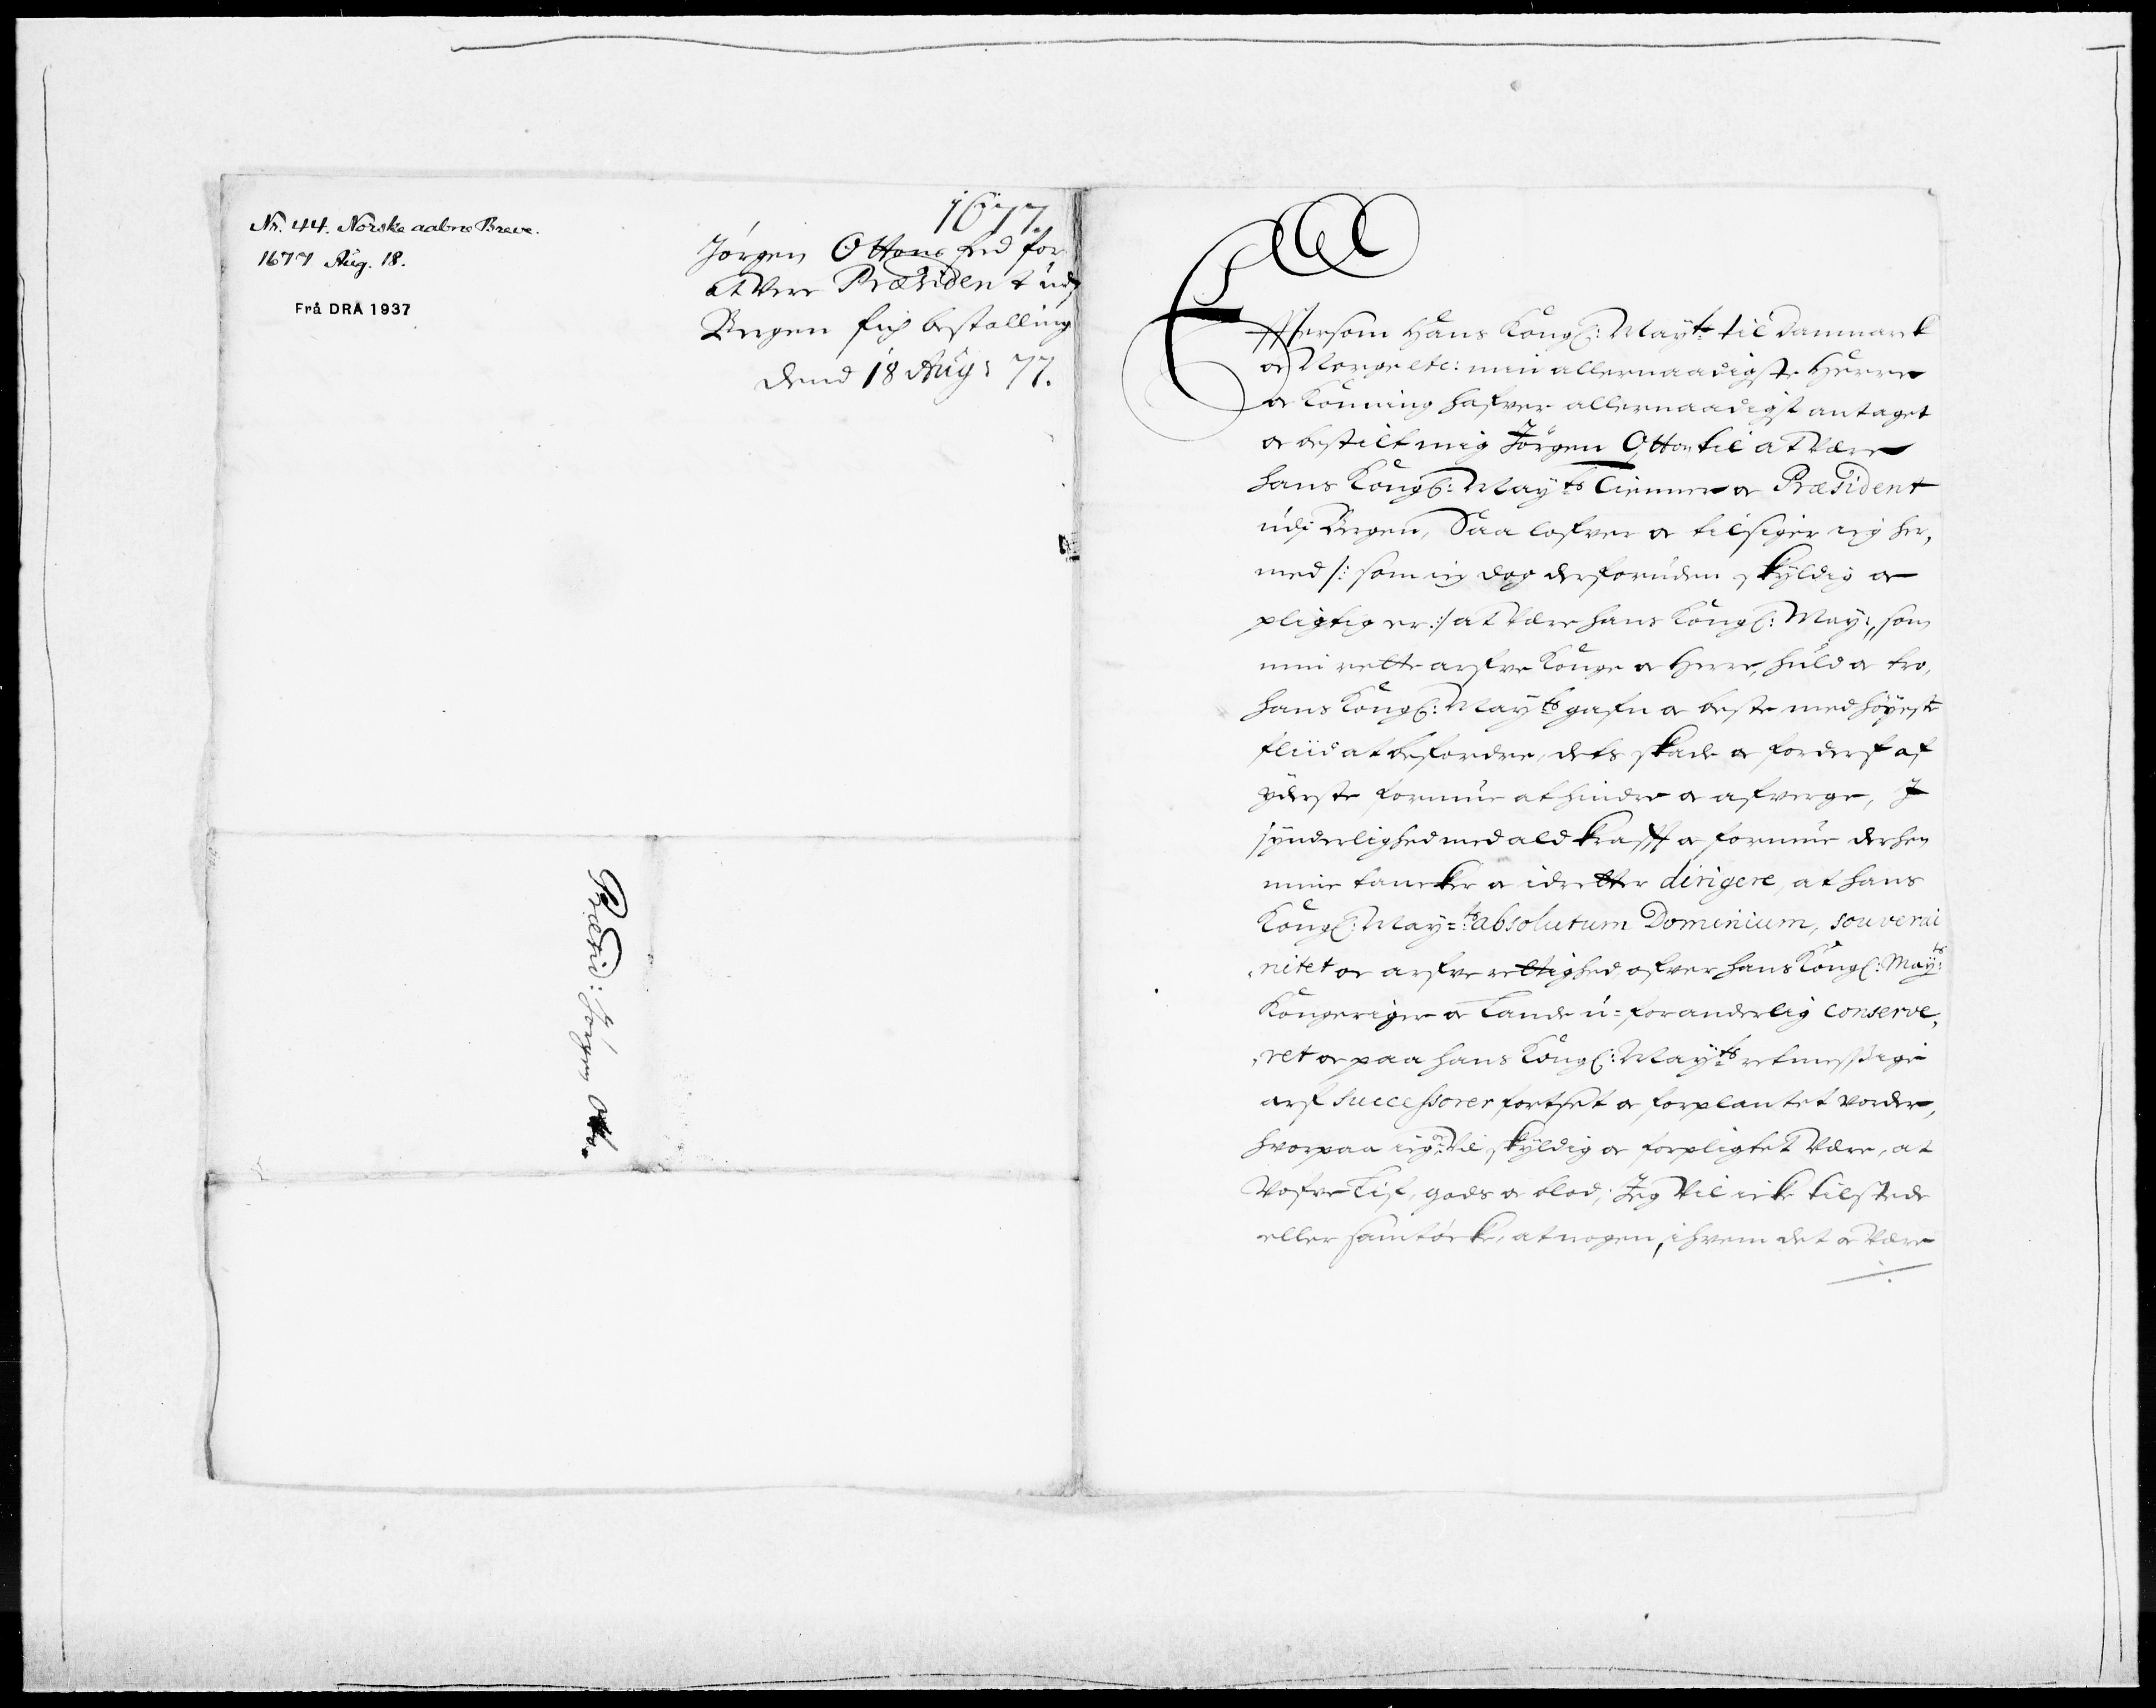 Nr. 44. Norske aabne Breve.
1677 Aug. 18.
Frå DRA 1937
1677.
Jørgen Ottons Eed for
at Vere Præsident udj
Bergen fich bestalling
dend 18 Aug: 77.
Præsid: Jørgen Otto.
Effttersom Hans Kongl: Mayts til Danmarck
oc Norge etc: min allernaadigste Herre
oc Konning hafver allernaadigst antaget
oc bestilt mig Jörgen Otton til at Være
hans Kongl: Mayts Tienner oc Præsident
udi Bergen, Saa lofver oc tilsiger ieg her,
med /: som ieg dog desforuden skyldig oc
pligtig er :/ at Være hans Kongl: May:, som
min rette arfve Konge oc Herre, huld oc tro,
hans Kongl: Mayts gafn oc beste med höyeste
fliid at befordre, dets skade oc forderf af
yderste formue at hindre oc afverge, J
synderlighed med ald krafft oc formue derhen
mine tancker oc idretter dirigere, at hans
Kongl: May=ts absolutum Dominium, souverai
,nitet oc arfve rettighed ofver hans Kongl: Mayts:
Kongeriger oc Lande u=foranderlig conserve,
,ret oc paa hans Kongl: Mayts retmessige
arf successorer fortset oc forplantet vorder,
hvorpaa ieg Vil skyldig oc forpligtet Være, at
Vofve Lif, gods oc blod, Jeg Vil icke tilstede
eller samtöcke, at nogen, i hvem det oc Være